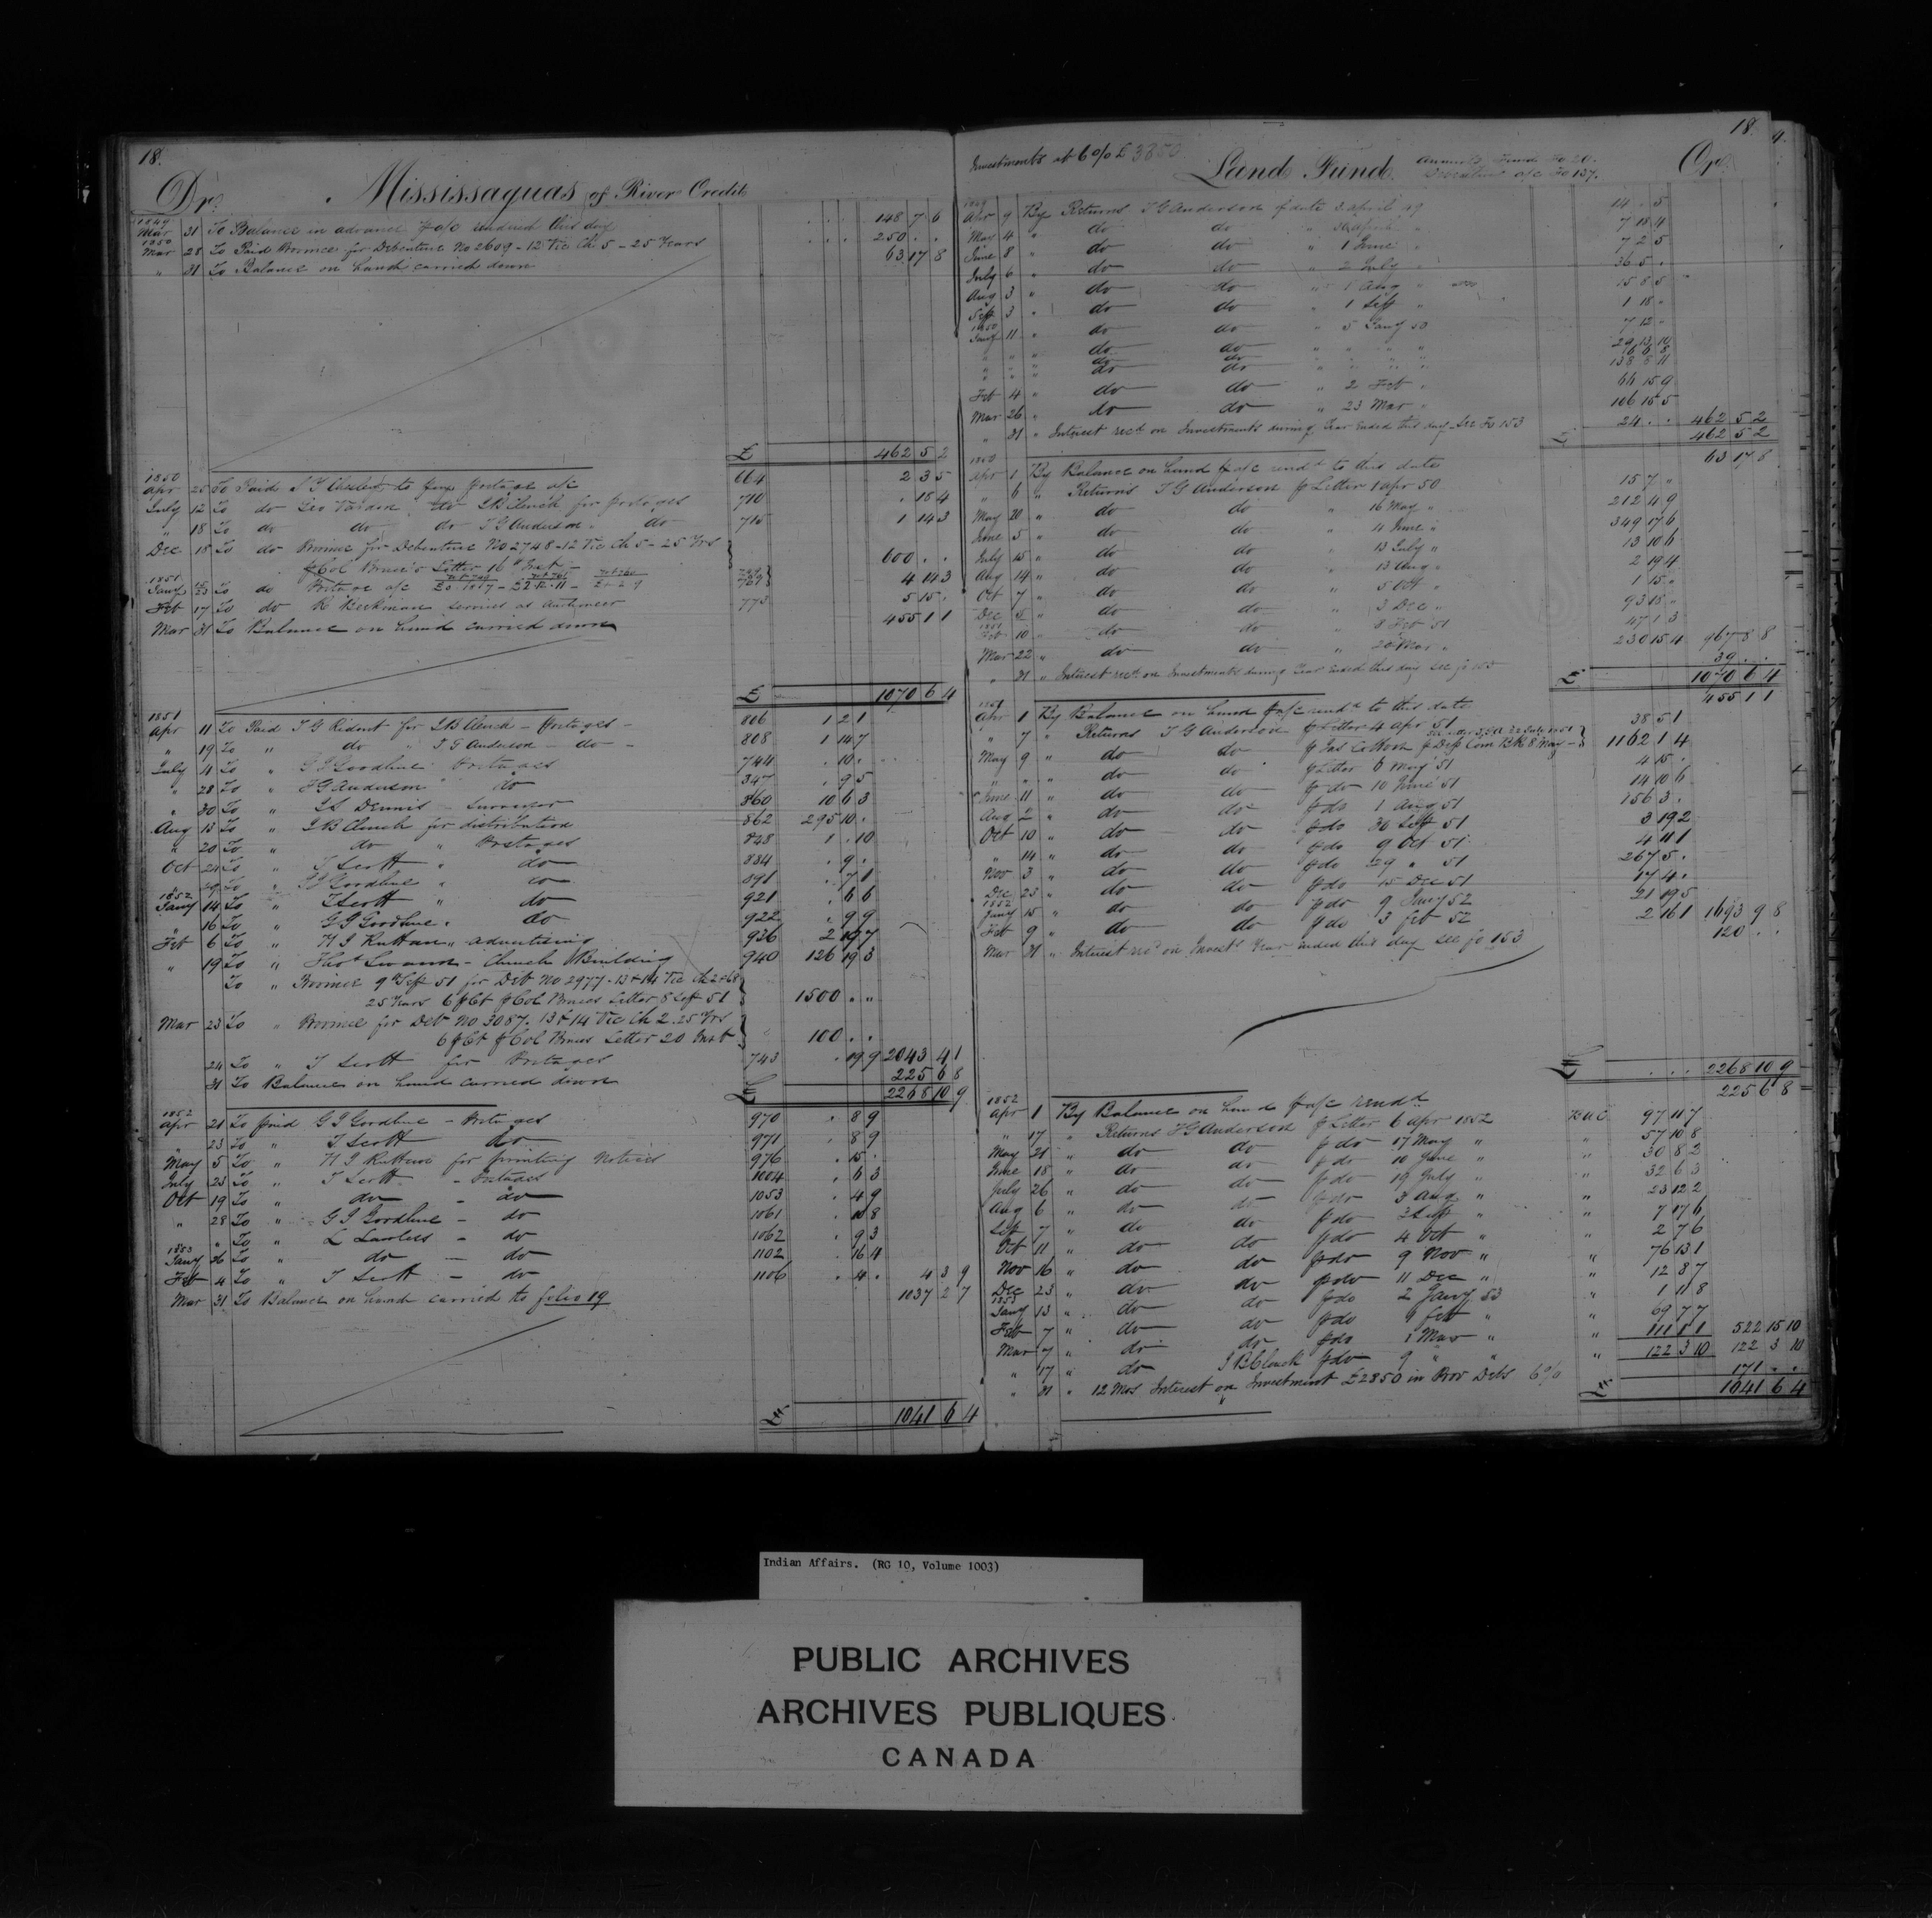 18.
Dr. Mississaguas of River Credit
1849
Mar 31 To Balance in advance p a/c rendered this day . . . 148 7 6
1850
Mar 28 To Paid Province for Debenture No 2609 - 12 Vic Ch 5 - 25 Years . . . 250 . .
" 31 To Balance on hand carried down 63 17 8
£ 462 5 2
1850
Apr 25 To Paid to postage a/c 664 2 3 5
July 12 To do Geo Vardon S B Clench for postages 710 . 18 4
" 18 To do do do T G Anderson do 715 1 14 3
Dec 18 To do Province for Debenture No 2748 - 12 Vic Ch 5 - 25 Yrs
p Col Bruce's Letter 16th Inst - 600 . .
1851
Jany To do Postage a/c 4 14 3
Feb 17 To do R Beekman services as Auctioneer 773 5 15 .
Mar 31 To Balance on hand carried down 455 1 1
£ 1070 6 4
1851
Apr 11 To Paid T G Ridout for J B Clench - Postages - 806 1 2 1
" 19 To " do " T G Anderson - do - 808 1 14 7
July 4 To " Goodhue Postages 744 . 10 .
" 28 To " T G Anderson do 347 . 9 5
" 30 To " Dennis - Surveyor 860 10 6 3
Aug 13 To " J B Clench for distribution 862 295 10 .
" 20 To " do " Postages 828 1 . 10
Oct 24 To " T Scott " do 884 . 9 .
To " Goodhue " do 891 . 7 1
1852
Jany 14 To " T Scott " do 921 . 6 6
" 16 To " G J Goodhue " do 922 . 9 9
Feb 6 To " H J Ruttan " advertising 936 2 19 7
" 19 To " Thos - Church Building 940 126 19 3
To " Province 9th Sept 51 for Deb No 2977 - 13 & 14 Vic Ch 2 & 68
25 Years 6 p Ct p Col Bruces Letter 8 Sept 51 1500 . "
Mar 23 To " Province for Deb No 3087. 13 & 14 Vic Ch 2. 25 Yrs
6 p Ct p Col Bruces Letter 20 Inst 100 . .
24 To " T Scott for Postages 743 . 19 9 2043 4 1
31 To Balance on hand carried down 225 6 8
£ 2268 10 9
1852
Apr 21 To paid G J Goodhue - Postages 970 . 8 9
" 23 To " T Scott do 971 . 8 9
May 5 To " H J Ruttan for printing Notices 976 . 15 .
July 23 To " T Scott - Postages 1004 . 6 3
Oct 19 To " do - do 1053 . 4 9
" 28 To " G J Goodhue - do 1061 . 10 8
" " To " L Lawless - do 1062 . 9 3
1853
Jany 26 To " do - do 1102 . 16 4
Feb 4 To " T Scott - do 1106 . 4 . 4 3 9
Mar 31 To Balance on hand carried to folio 19 1037 2 7
£ 1041 6 4
18.
9.
Investments at 6 o/o £ 3850
Land Fund Annuity Fund Fo 20.
Debenture a/c Fo 137. Cr.
1849
Apr 9 By Returns T G Anderson p date 2 April 49 14 . 5
May 4 " do do " 30 April " 7 18 4
June 8 " do do " 1 June " 7 2 5
July 6 " do do " 2 July " 36 5 .
Aug 3 " do do " 1 Aug " 15 8 5
Sept 3 " do do " 1 Sept " 1 18 "
1850
Jany 11 " do do " 5 Jany 50 7 12 -
" " " do do " " " 29 13 10
" " " do do " " " 138 11
Feb 4 " do do " 2 Feb " 64 15 9
Mar 26 " do do " 23 Mar " 106 15 5
" 31 " Interest recd on Investments during Year ended this day - See Fo 153 24 . . 462 5 2
£ 462 5 2
1850
Apr 1 By Balance on hand p a/c rendd to this date 63 17 8
" 6 " Returns T G Anderson p Letter 1 Apr 50 15 7 "
May 20 " do do " 16 May " 212 4 9
June 5 " do do " 4 June " 349 17 6
July 15 " do do " 13 July " 13 10 6
Aug 14 " do do " 13 Aug " 2 19 4
Oct 7 " do do " 5 Oct " 1 15 "
Dec 5 " do do " 3 Dec " 93 18 "
1851
Feb 10 " do do " 8 Feb 51 47 1 3
Mar 22 " do do " 20 Mar " 230 15 4 967 8 8
" 31 " Interest recd on Investments during Year ended this day See fo 153 39 . .
£ 1070 6 4
1851
Apr 1 By Balance on hand p a/c rendd to this date 455 1 1
" 7 " Returns T G Anderson p Letter 4 Apr 51 38 5 1
May 9 " do do p Jas p Dep Com 8 May - 1162 1 4
" " " do do p Letter 6 May 51 4 15 .
June 11 " do do p do 10 June 51 14 10 6
Aug 2 " do do p do 1 Aug 51 156 3 .
Oct 10 " do do p do 30 Sept 51 3 19 2
" 14 " do do p do 9 Oct 51 4 11 1
Nov 3 " do do p do 29 " 51 267 5 .
Dec 23 " do do p do 15 Dec 51 17 4 .
1852
Jany 15 " do do p do 9 Jany 52 21 19 5
Feb 9 " do do p do 3 Feb 52 2 16 1 1693 9 8
Mar 31 " Interest recd on Invests Year ended this day See fo 153 120 . .
£ . . . 2268 10 9
1852
Apr 1 By Balance on hand p a/c rendd 225 6 8
" 17 " Returns T G Anderson p Letter 6 Apr 1852 97 11 7
May 21 " do do p do 17 May " " 57 10 8
June 18 " do do p do 10 June " " 30 8 2
July 26 " do do p do 19 July " " 32 6 3
Aug 6 " do do p do 3 Aug " " 23 12 2
Sept 7 " do do p do 3 Sept " " 7 17 6
Oct 11 " do do p do 4 Oct " " 2 7 6
Nov 16 " do do p do 9 Nov " " 76 13 1
Dec 23 " do do p do 11 Dec " " 12 8 7
1853
Jany 13 " do do p do 2 Jany 53 " 1 11 8
Feb 7 " do do p do 4 Feb " " 69 7 7
Mar 7 " do do p do 1 Mar " " 111 1 1 522 15 10
" 17 " do J B Clench p do 9 " " " 122 3 10 122 3 10
" 31 " 12 Mos Interest on Investment £2850 in Prov Debs 6 o/o 171 . .
£ 1041 6 4
Indian Affairs. (RG 10, Volume 1003)
PUBLIC ARCHIVES
ARCHIVES PUBLIQUES
CANADA